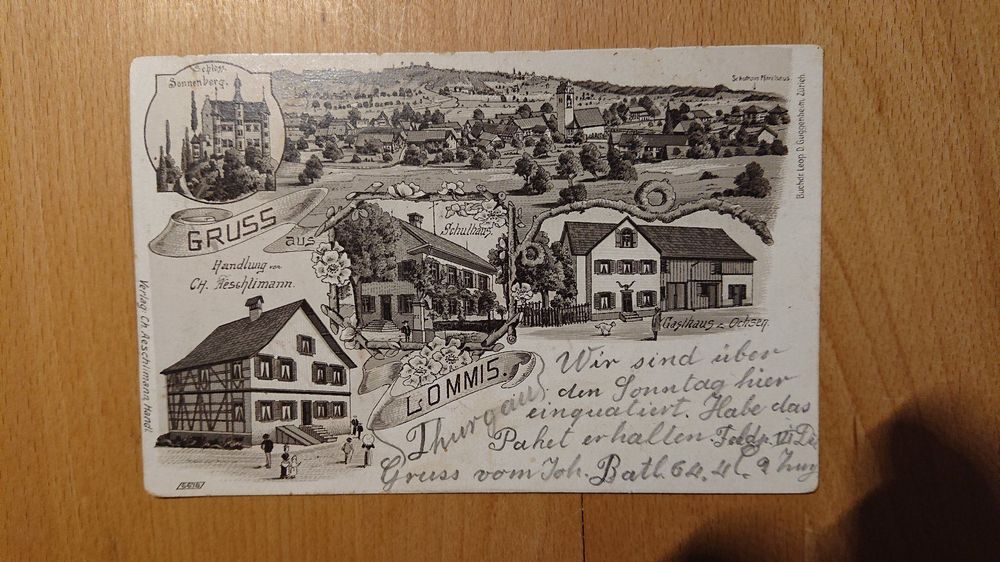 Schloss
Sonnenberg.
GRUSS
aus
LOMMIS.
Schulhaus.
Handlung von
CH. Aeschlimann.
Gasthaus z. Ochsen.
Buchdr. Leop. D. Guggenheim, Zürich.
Verlag: Ch. Aeschlimann, Handl.
Thurgau
Wir sind über
den Sonntag hier
einquatiert. Habe das
Paket erhalten. Feldp. III
Gruss vom Joh. Batl. 64